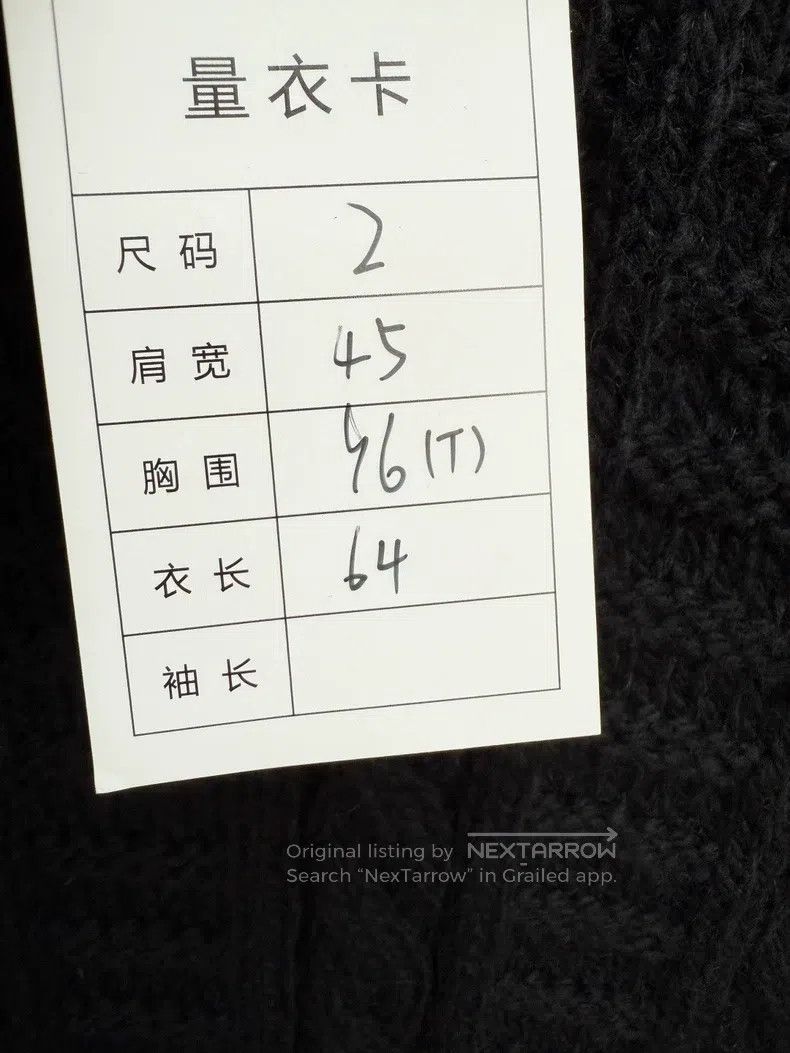 量衣卡
尺码 2
肩宽 45
胸围 96(T)
衣长 64
袖长
Original listing by NEXTARROW
Search “NexTarrow” in Grailed app.